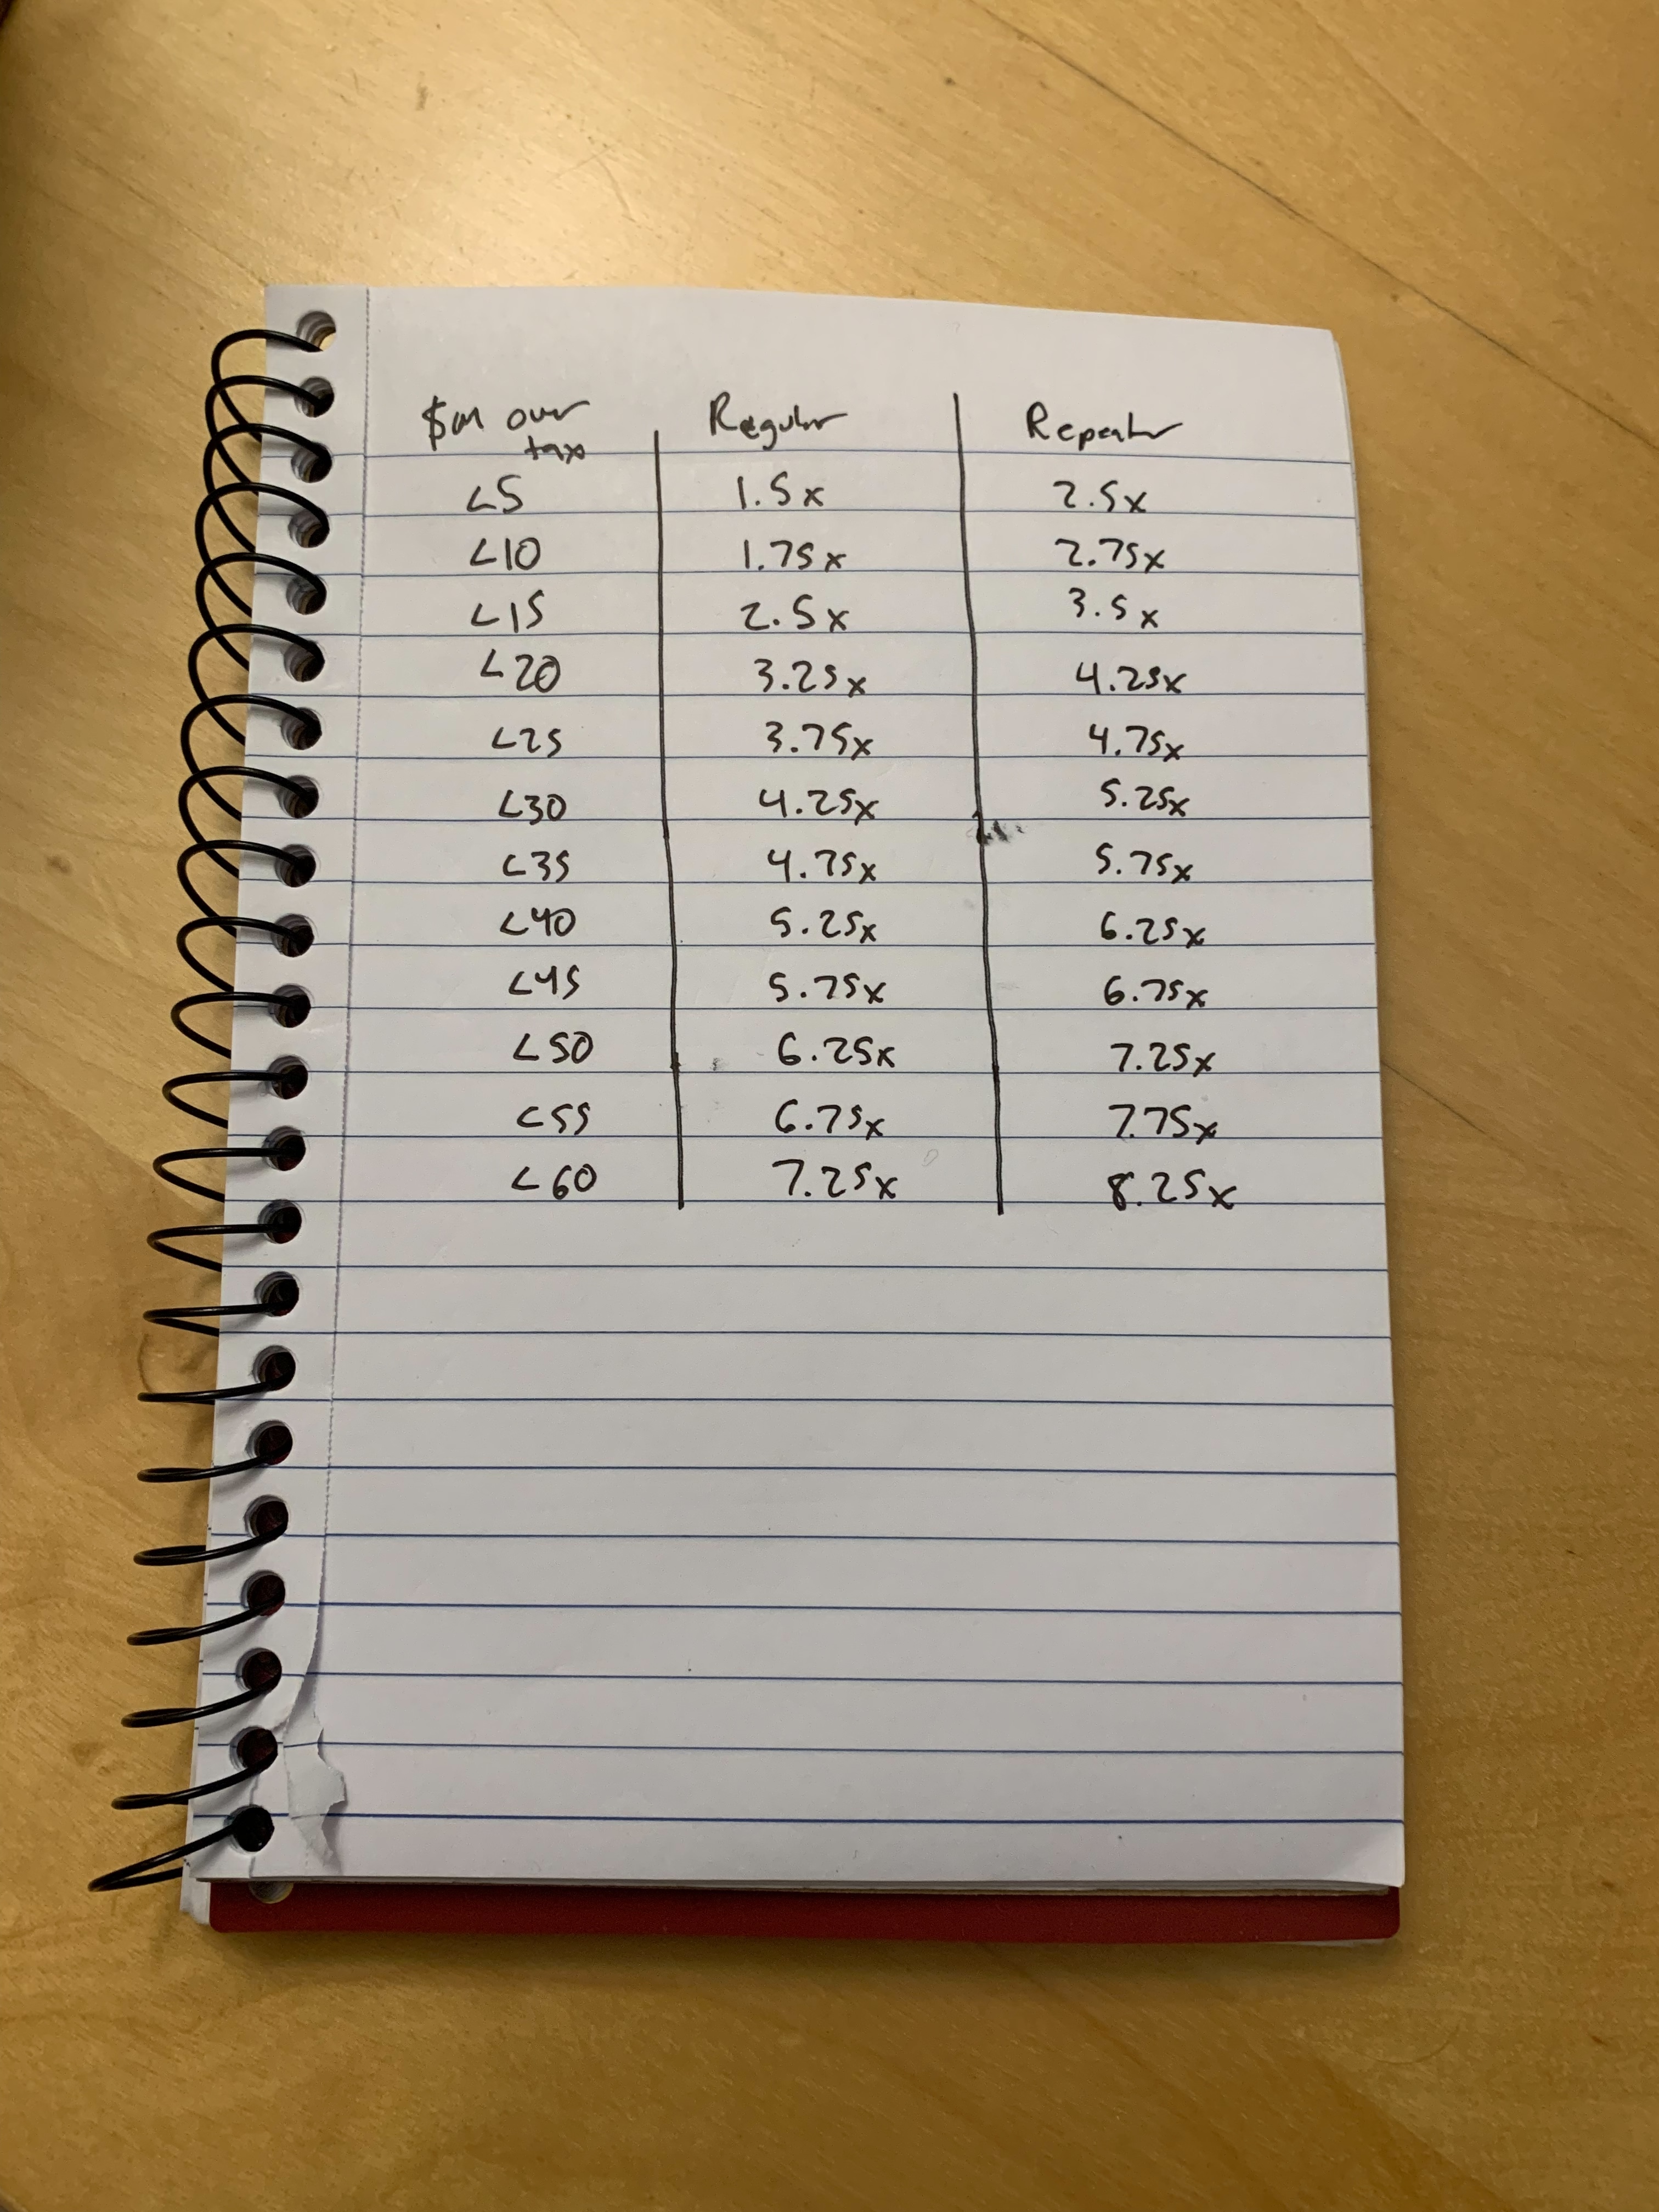 $m over tax Regular Repeater
<5 1.5x 2.5x
<10 1.75x 2.75x
<15 2.5x 3.5x
<20 3.25x 4.25x
<25 3.75x 4.75x
<30 4.25x 5.25x
<35 4.75x 5.75x
<40 5.25x 6.25x
<45 5.75x 6.75x
<50 6.25x 7.25x
<55 6.75x 7.75x
<60 7.25x 8.25x